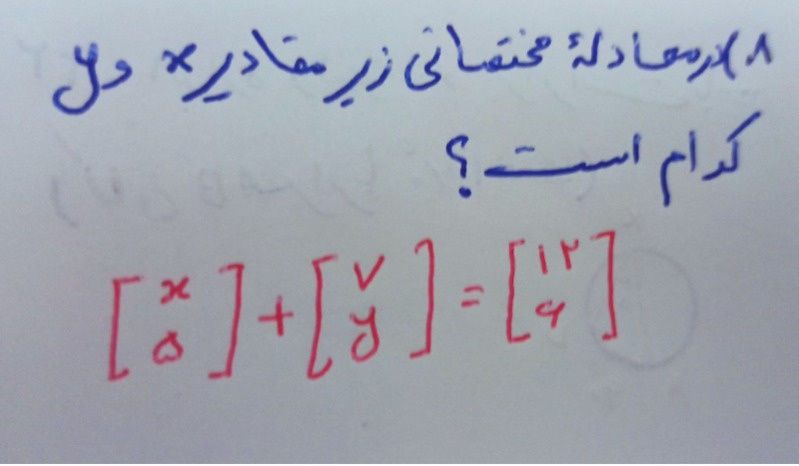 ۸) در معادلهٔ مختصاتی زیر مقادیر x و y
کدام است؟
[x ۵] + [۷ y] = [۱۲ ۹]